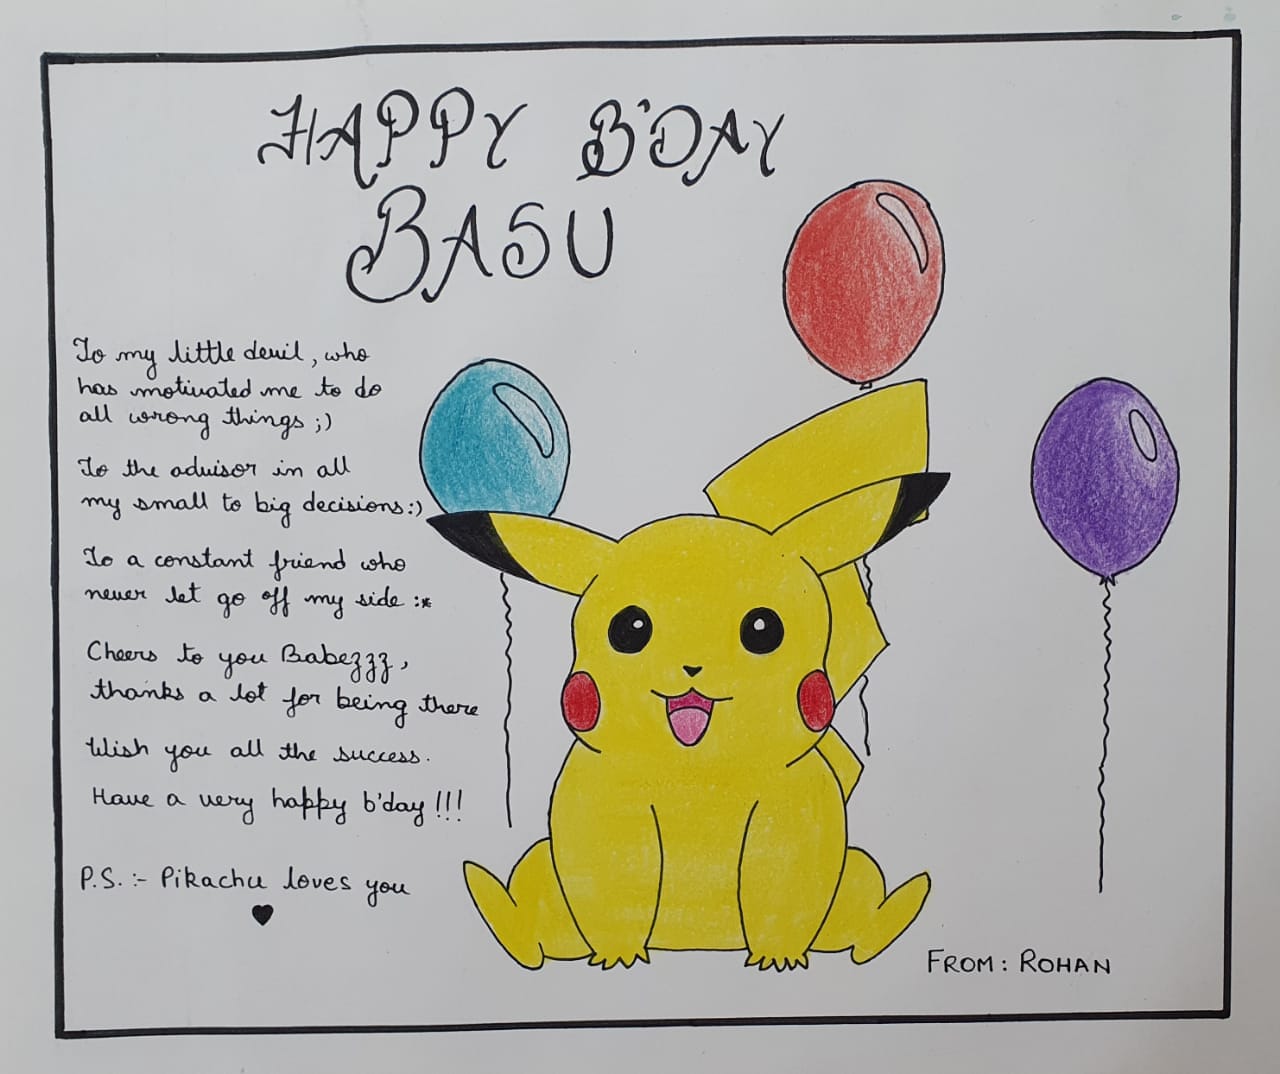 HAPPY B'DAY
BASU
To my little devil, who
has motivated me to do
all wrong things ;)
To the advisor in all
my small to big decisions:)
To a constant friend who
never let go off my side :*
Cheers to you Babezzz,
thanks a lot for being there
Wish you all the success.
Have a very happy b'day !!!
P.S. :- Pikachu loves you
♥
FROM: ROHAN